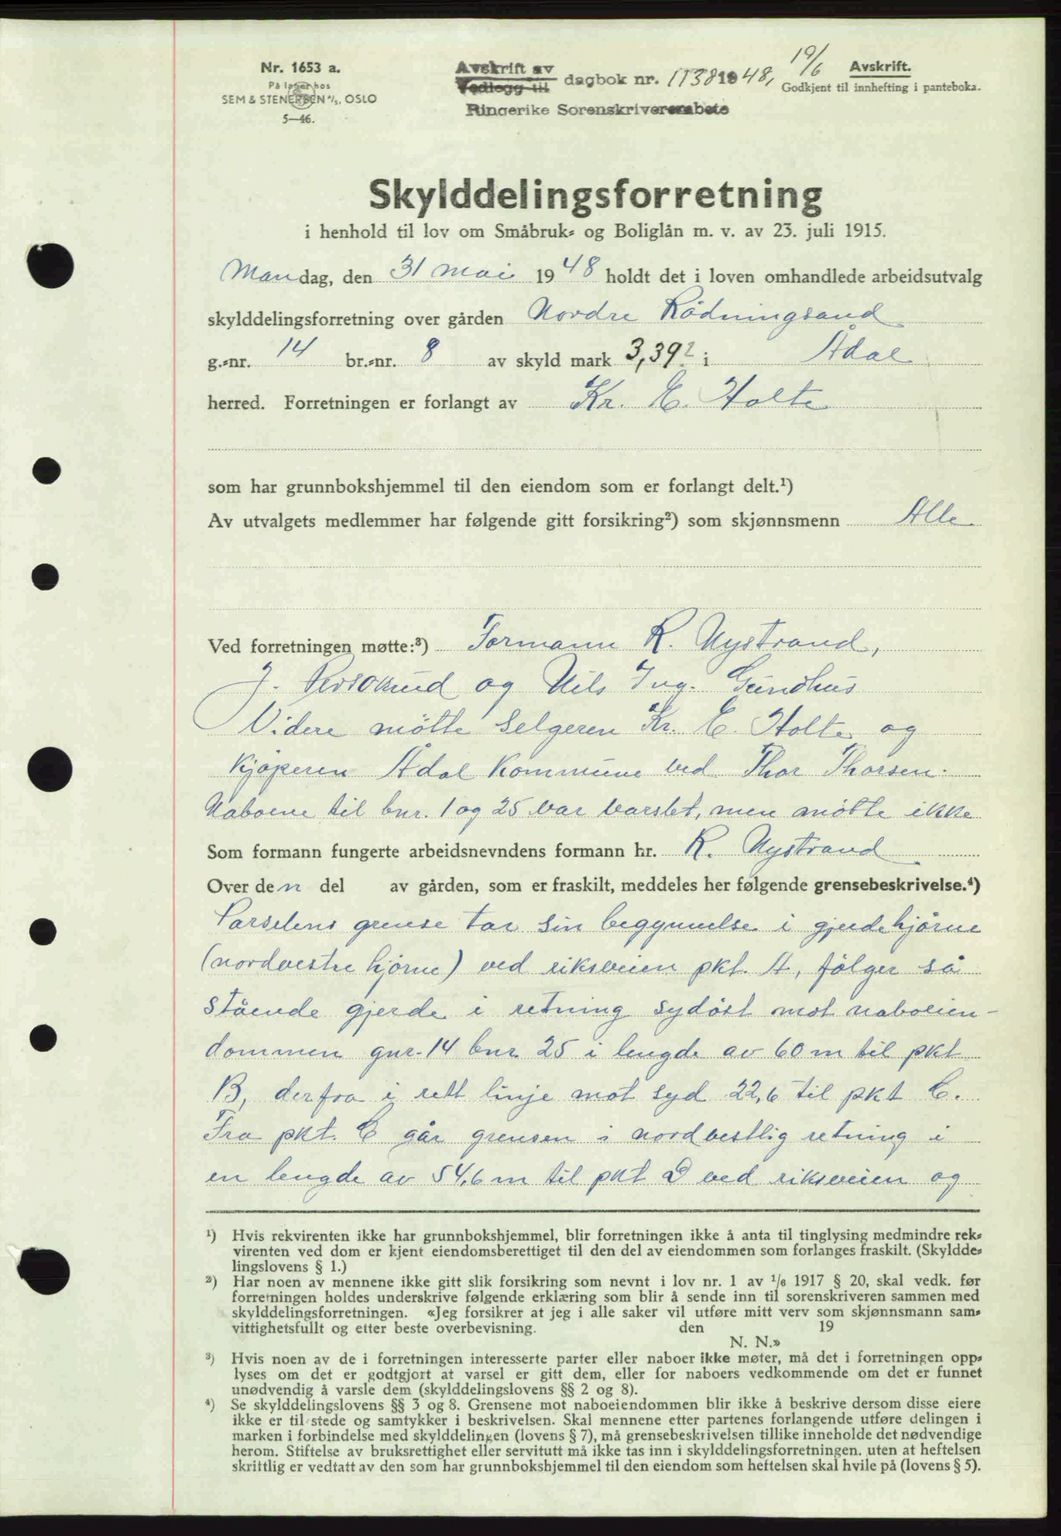 Nr. 1653 a.
På lager hos
SEM & STENERSEN A/S, OSLO
5—46.
Avskrift av
Vedlegg til dagbok nr. 1738 1948,
Ringerike Sorenskriverembete
19/6 Avskrift.
Godkjent til innhefting i panteboka.
Skylddelingsforretning
i henhold til lov om Småbruk- og Boliglån m. v. av 23. juli 1915.
Mandag, den 31 mai 1948 holdt det i loven omhandlede arbeidsutvalg
skylddelingsforretning over gården Nordre Rødningsand
g.-nr. 14 br.-nr. 8 av skyld mark 3,39 i Ådal
herred. Forretningen er forlangt av Kr. E. Holte
som har grunnbokshjemmel til den eiendom som er forlangt delt.¹)
Av utvalgets medlemmer har følgende gitt forsikring²) som skjønnsmenn Alle
Ved forretningen møtte:³) Formann R. Nystrand,
J. og Nils Ing. Gundhus
Videre møtte selgeren Kr. E. Holte og
kjøperen Ådal kommune ved Thor Thorsen.
Naboene til bnr. 1 og 25 var varslet, men møtte ikke
Som formann fungerte arbeidsnevndens formann hr. R. Nystrand
Over den del av gården, som er fraskilt, meddeles her følgende grensebeskrivelse.⁴)
Parselens grense tar sin begynnelse i gjerdehjørne
(nordvestre hjørne) ved riksveien pkt. A, følger så
stående gjerde i retning sydøst mot naboeien-
dommen gnr. 14 bnr. 25 i lengde av 60 m til pkt
B, derfra i rett linje mot syd 22,6 til pkt C.
Fra pkt. C går grensen i nordvestlig retning i
en lengde av 54,6 m til pkt D ved riksveien og
¹) Hvis rekvirenten ikke har grunnbokshjemmel, blir forretningen ikke å anta til tinglysing medmindre rek-
virenten ved dom er kjent eiendomsberettiget til den del av eiendommen som forlanges fraskilt. (Skyldde-
lingslovens § 1.)
²) Har noen av mennene ikke gitt slik forsikring som nevnt i lov nr. 1 av 1/6 1917 § 20, skal vedk. før
forretningen holdes underskrive følgende erklæring som blir å sende inn til sorenskriveren sammen med
skylddelingsforretningen. «Jeg forsikrer at jeg i alle saker vil utføre mitt verv som skjønnsmann sam-
vittighetsfullt og etter beste overbevisning. den 19
N. N.»
³) Hvis noen av de i forretningen interesserte parter eller naboer ikke møter, må det i forretningen opp-
lyses om det er godtgjort at varsel er gitt dem, eller for naboers vedkommende om det er funnet
unødvendig å varsle dem (skylddelingslovens §§ 2 og 8).
⁴) Se skylddelingslovens §§ 3 og 8. Grensene mot naboeiendommen blir ikke å beskrive dersom disse eiere
ikke er til stede og samtykker i beskrivelsen. Skal mennene etter partenes forlangende utføre delingen i
marken i forbindelse med skylddelingen (lovens § 7), må grensebeskrivelsen tillike inneholde det nødvendige
herom. Stiftelse av bruksrettighet eller servitutt må ikke tas inn i skylddelingsforretningen, uten at heftelsen
skriftlig er vedtatt av den som har grunnbokshjemmel til den eiendom som heftelsen skal hvile på (lovens § 5).